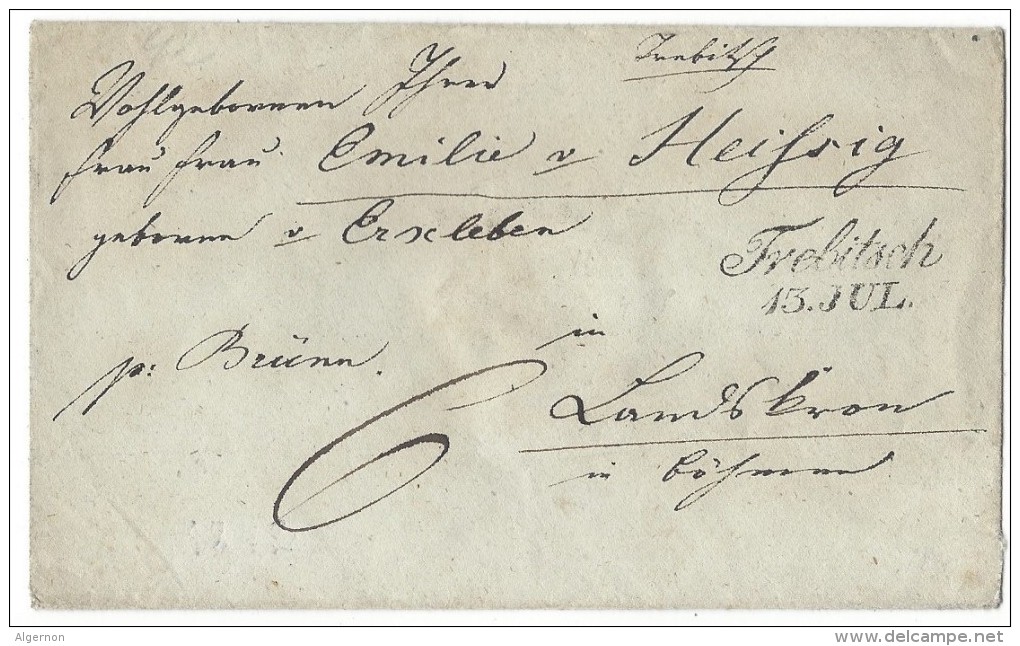 Trebitsch
Wohlgebornen Ihrer
Frau Frau Emilie v Heißsig
geborne v Erxleben
Trebitsch
13. JUL.
pr: Brünn.
in
6
Landskron
in Böhmen
Algernon
www.delcampe.net